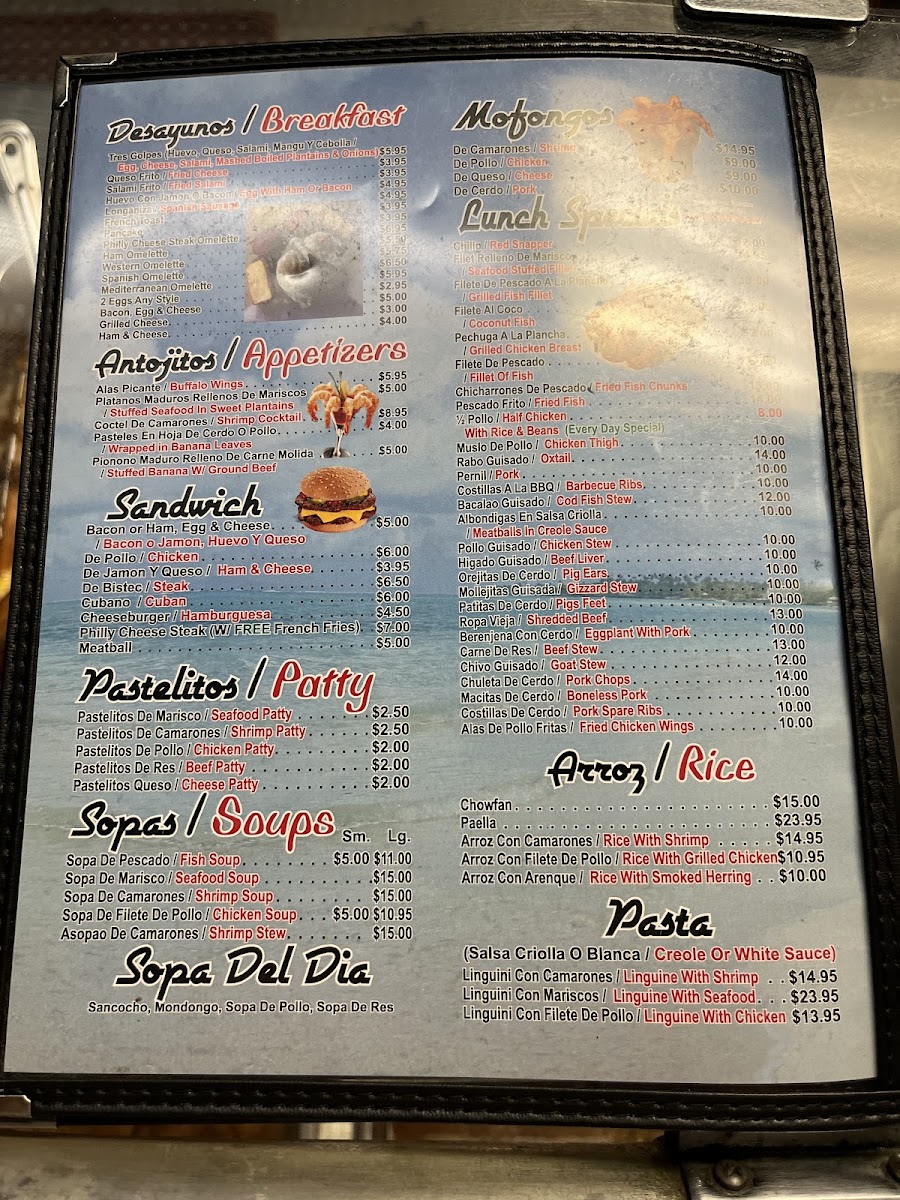 Desayunos / Breakfast
Tres Golpes (Huevo, Queso, Salami, Mangu Y Cebolla /
Egg, Cheese, Salami, Mashed Boiled Plantains & Onions) $5.95
Queso Frito / Fried Cheese $3.95
Salami Frito / Fried Salami $3.95
Huevo Con Jamon O Bacon / Egg With Ham Or Bacon $4.95
Longaniza / Spanish Sausage $3.95
French Toast $3.95
Pancake $3.95
Philly Cheese Steak Omelette
Ham Omelette
Western Omelette
Spanish Omelette $6.50
Mediterranean Omelette $5.95
2 Eggs Any Style $2.95
Bacon, Egg & Cheese $5.00
Grilled Cheese $3.00
Ham & Cheese $4.00
Antojitos / Appetizers
Alas Picante / Buffalo Wings $5.95
Platanos Maduros Rellenos De Mariscos $5.00
/ Stuffed Seafood In Sweet Plantains
Coctel De Camarones / Shrimp Cocktail $8.95
Pasteles En Hoja De Cerdo O Pollo $4.00
/ Wrapped in Banana Leaves
Pionono Maduro Relleno De Carne Molida $5.00
/ Stuffed Banana W/ Ground Beef
Sandwich
Bacon or Ham, Egg & Cheese $5.00
/ Bacon o Jamon, Huevo Y Queso
De Pollo / Chicken $6.00
De Jamon Y Queso / Ham & Cheese $3.95
De Bistec / Steak $6.50
Cubano / Cuban $6.00
Cheeseburger / Hamburguesa $4.50
Philly Cheese Steak (W/ FREE French Fries) $7.00
Meatball $5.00
Pastelitos / Patty
Pastelitos De Marisco / Seafood Patty $2.50
Pastelitos De Camarones / Shrimp Patty $2.50
Pastelitos De Pollo / Chicken Patty $2.00
Pastelitos De Res / Beef Patty $2.00
Pastelitos Queso / Cheese Patty $2.00
Sopas / Soups Sm. Lg.
Sopa De Pescado / Fish Soup $5.00 $11.00
Sopa De Marisco / Seafood Soup $15.00
Sopa De Camarones / Shrimp Soup $15.00
Sopa De Filete De Pollo / Chicken Soup $5.00 $10.95
Asopao De Camarones / Shrimp Stew $15.00
Sopa Del Dia
Sancocho, Mondongo, Sopa De Pollo, Sopa De Res
Mofongos
De Camarones / Shrimp $14.95
De Pollo / Chicken $9.00
De Queso / Cheese $9.00
De Cerdo / Pork $10.00
Lunch Specials
Chillo / Red Snapper
Filet Relleno De Mariscos
/ Seafood Stuffed Fillet
Filete De Pescado A La Plancha
/ Grilled Fish Fillet
Filete Al Coco
/ Coconut Fish
Pechuga A La Plancha
/ Grilled Chicken Breast
Filete De Pescado
/ Fillet Of Fish
Chicharrones De Pescado / Fried Fish Chunks
Pescado Frito / Fried Fish 14.00
½ Pollo / Half Chicken 8.00
With Rice & Beans (Every Day Special)
Muslo De Pollo / Chicken Thigh 10.00
Rabo Guisado / Oxtail 14.00
Pernil / Pork 10.00
Costillas A La BBQ / Barbecue Ribs 10.00
Bacalao Guisado / Cod Fish Stew 12.00
Albondigas En Salsa Criolla 10.00
/ Meatballs in Creole Sauce
Pollo Guisado / Chicken Stew 10.00
Higado Guisado / Beef Liver 10.00
Orejitas De Cerdo / Pig Ears 10.00
Mollejitas Guisada / Gizzard Stew 10.00
Patitas De Cerdo / Pigs Feet 10.00
Ropa Vieja / Shredded Beef 13.00
Berenjena Con Cerdo / Eggplant With Pork 10.00
Carne De Res / Beef Stew 13.00
Chivo Guisado / Goat Stew 12.00
Chuleta De Cerdo / Pork Chops 14.00
Macitas De Cerdo / Boneless Pork 10.00
Costillas De Cerdo / Pork Spare Ribs 10.00
Alas De Pollo Fritas / Fried Chicken Wings 10.00
Arroz / Rice
Chowfan $15.00
Paella $23.95
Arroz Con Camarones / Rice With Shrimp $14.95
Arroz Con Filete De Pollo / Rice With Grilled Chicken $10.95
Arroz Con Arenque / Rice With Smoked Herring $10.00
Pasta
(Salsa Criolla O Blanca / Creole Or White Sauce)
Linguini Con Camarones / Linguine With Shrimp $14.95
Linguini Con Mariscos / Linguine With Seafood $23.95
Linguini Con Filete De Pollo / Linguine With Chicken $13.95